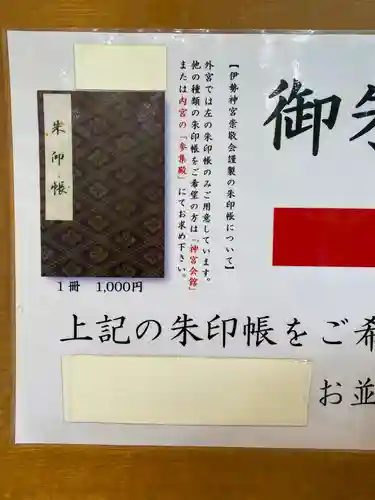 御朱
【伊勢神宮崇敬会謹製の朱印帳について】
外宮では左の朱印帳のみご用意しています。
他の種類の朱印帳をご希望の方は「神宮会館」
または内宮の「参集殿」にてお求め下さい。
朱印帳
1冊 1,000円
上記の朱印帳をご希
お並